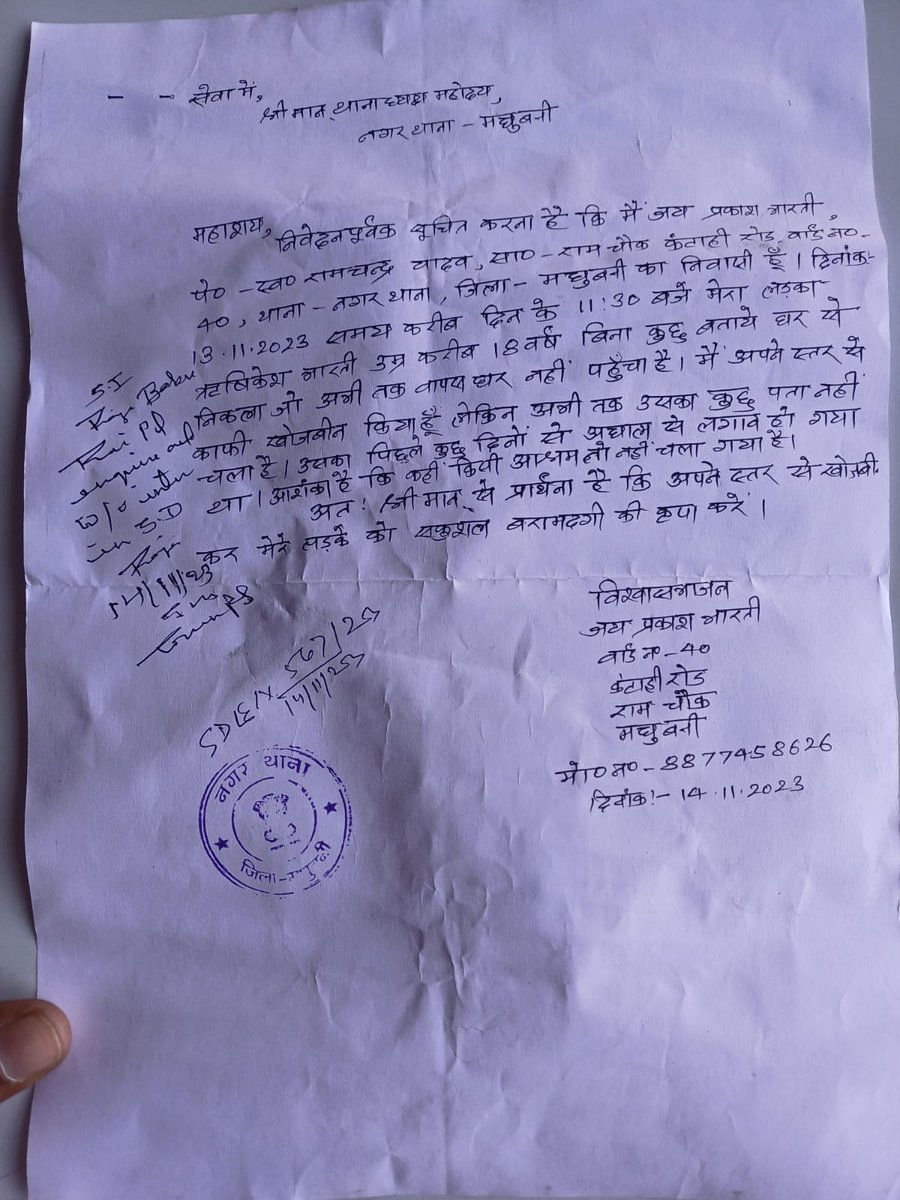 सेवा में,
श्रीमान् थानाध्यक्ष महोदय,
नगर थाना - मधुबनी
महाशय,
निवेदनपूर्वक सूचित करना है कि मैं जय प्रकाश भारती,
पे० - स्व० रामचन्द्र यादव, सा० - राम चौक कंटाही रोड, वार्ड न०-
40, थाना - नगर थाना, जिला - मधुबनी का निवासी हूँ। दिनांक-
13.11.2023 समय करीब दिन के 11:30 बजे मेरा लड़का
ऋषिकेश भारती उम्र करीब 18 वर्ष बिना कुछ बताये घर से
निकला जो अभी तक वापस घर नहीं पहुँचा है। मैं अपने स्तर से
काफी खोजबीन किया हूँ लेकिन अभी तक उसका कुछ पता नहीं
चला है। उसका पिछले कुछ दिनों से अध्यात्म से लगाव हो गया
था। आशंका है कि कहीं किसी आश्रम तो नहीं चला गया है।
अतः श्रीमान् से प्रार्थना है कि अपने स्तर से खोजबी-
कर मेरे लड़के को सकुशल बरामदगी की कृपा करें।
S.I
in S.I
14/11/23
विश्वासभाजन
जय प्रकाश भारती
वार्ड न०-40
कंटाही रोड
राम चौक
मधुबनी
मो० न० - 8877458626
दिनांक:- 14.11.2023
567/23
14/11/23
नगर थाना
जिला-मधुबनी